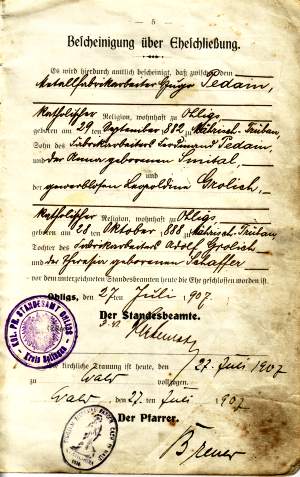 — 5 —
Bescheinigung über Eheschließung.
Es wird hierdurch amtlich bescheinigt, daß zwischen dem
Metallfabrikarbeiter Hugo Pedain,
katholischer Religion, wohnhaft zu Ohligs
geboren am 29 ten September 882 zu Mährisch-Trübau
Sohn des Fabrikarbeiters Ferdinand Pedain,
und der Anna geborenen Smital,
und
der gewerblosen Leopoldine Grolich,
katholischer Religion, wohnhaft zu Ohligs
geboren am 28 ten Oktober 888 zu Mährisch-Trübau,
Tochter des Fabrikarbeiters Adolf Grolich
und der Theresia geborenen Schaffer
vor dem unterzeichneten Standesbeamten heute die Ehe geschlossen worden ist.
Ohligs, den 27ten Juli 907.
Der Standesbeamte.
KGL. PR. STANDESAMT OHLIGS
Kreis Solingen
Die kirchliche Trauung ist heute, den 27. Juli 1907
zu Wald vollzogen.
Wald, den 27. ten Juli 1907
Der Pfarrer.